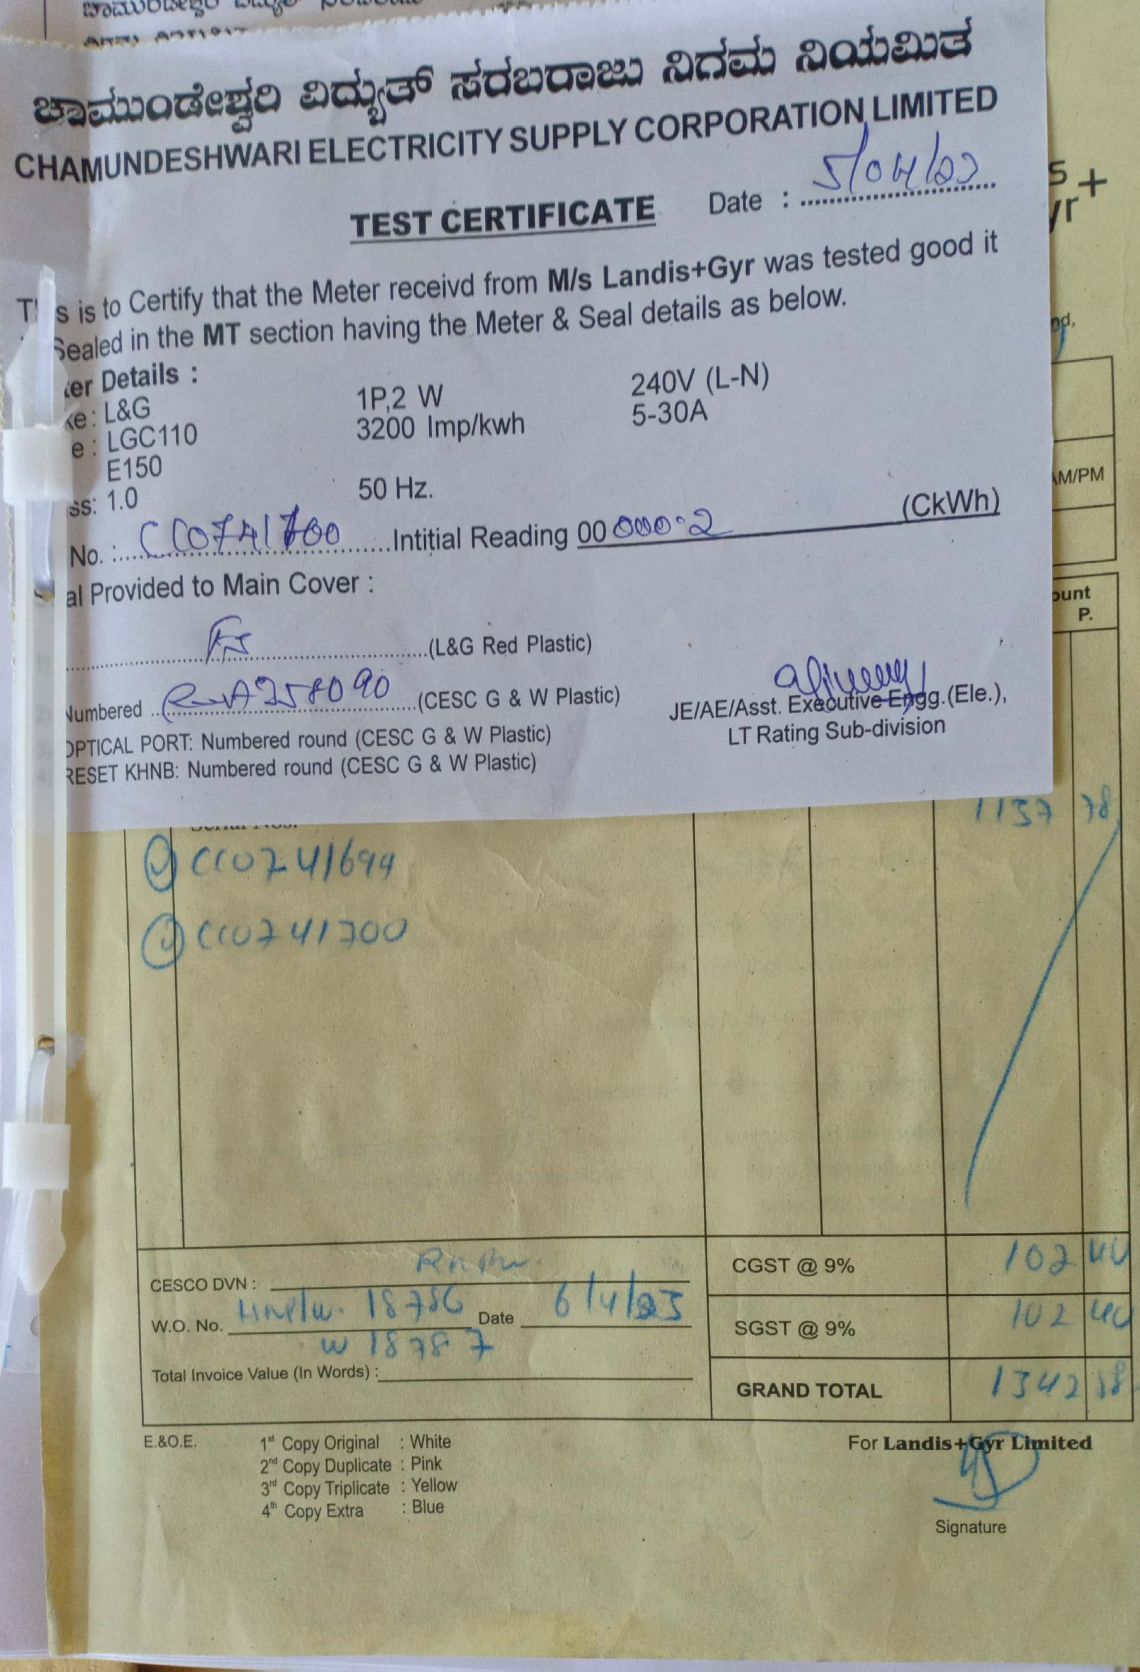 ಚಾಮುಂಡೇಶ್ವರಿ ವಿದ್ಯುತ್ ಸರಬರಾಜು ನಿಗಮ ನಿಯಮಿತ
CHAMUNDESHWARI ELECTRICITY SUPPLY CORPORATION LIMITED
TEST CERTIFICATE Date : 5/04/23
This is to Certify that the Meter receivd from M/s Landis+Gyr was tested good it
Sealed in the MT section having the Meter & Seal details as below.
ter Details :
ke : L&G 1P,2 W 240V (L-N)
e : LGC110 3200 Imp/kwh 5-30A
E150
ss: 1.0 50 Hz.
No. : CC0741700 Intitial Reading 00 000.2 (CkWh)
al Provided to Main Cover :
(L&G Red Plastic)
Numbered (CESC G & W Plastic)
OPTICAL PORT: Numbered round (CESC G & W Plastic)
RESET KHNB: Numbered round (CESC G & W Plastic)
JE/AE/Asst. Executive Engg.(Ele.),
LT Rating Sub-division
s +
yr
nd,
AM/PM
ount
P.
1137 78
CC0741699
CC0741700
CESCO DVN : CGST @ 9% 102 40
W.O. No. 18786 Date 6/4/23 SGST @ 9% 102 40
W 18787
Total Invoice Value (In Words) : GRAND TOTAL 1342 58
E.&O.E. 1st Copy Original : White For Landis+Gyr Limited
2nd Copy Duplicate : Pink
3rd Copy Triplicate : Yellow
4th Copy Extra : Blue
Signature